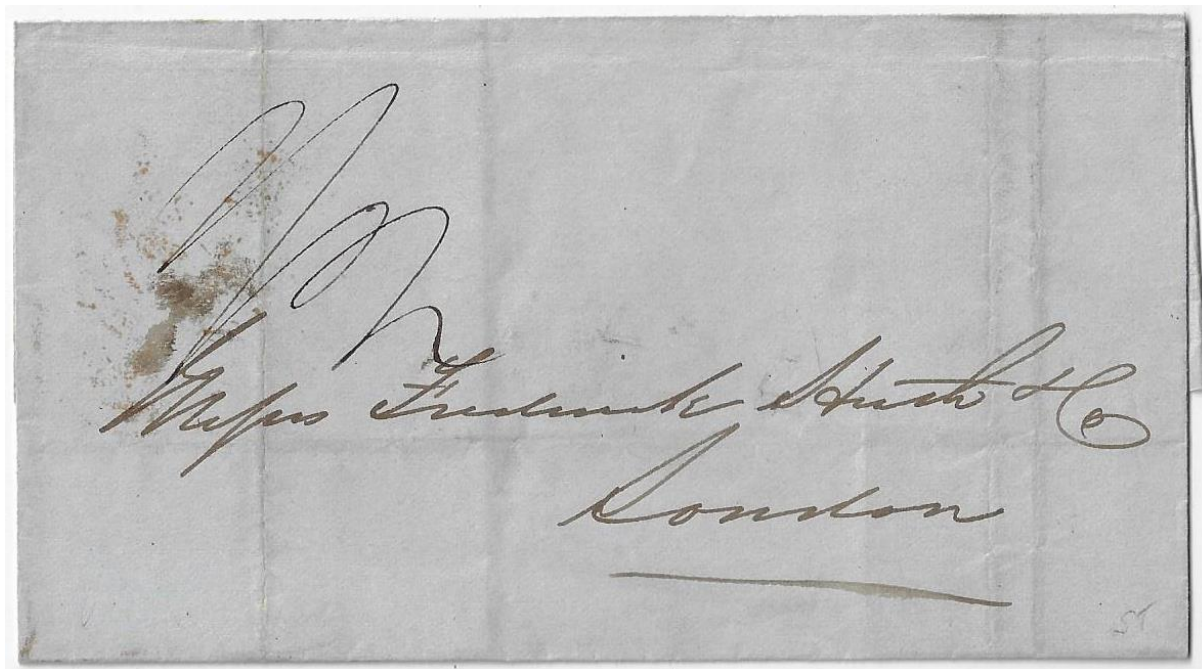 Messrs Frederick Huth & Co
London